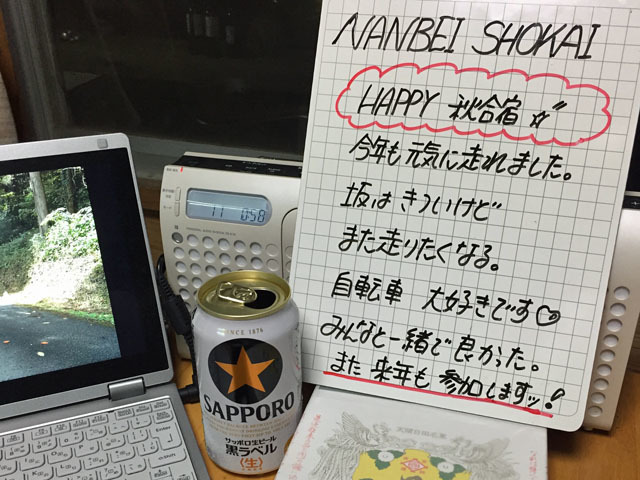 NANBEI SHOKAI
HAPPY 秋合宿☆
今年も元気に走れました。
坂はきついけど
また走りたくなる。
自転車 大好きです♡
みんなと一緒で良かった。
また来年も参加しますッ!
11 0:58
SINCE 1876
SAPPORO
サッポロ生ビール
黒ラベル
〈生〉